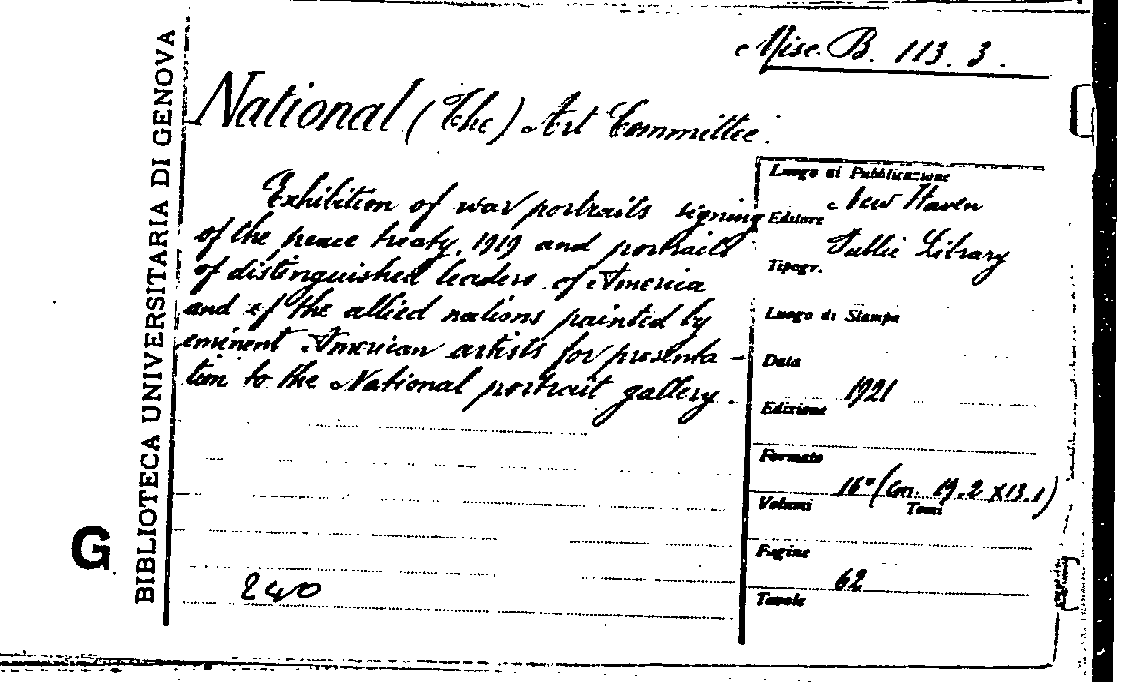 Misc. B. 113. 3.
National (The) Art Committee.
Exhibition of war portraits signing
of the peace treaty, 1919 and portraits
of distinguished leaders of America
and of the allied nations painted by
eminent American artists for presenta-
tion to the National portrait gallery.
240
Luogo di Pubblicazione
New Haven
Editore
Public Library
Tipogr.
Luogo di Stampa
Data
1921
Edizione
Formato
16° (cm. 19.2 x 13.1)
Volumi Tomi
Pagine
62
Tavole
BIBLIOTECA UNIVERSITARIA DI GENOVA
G